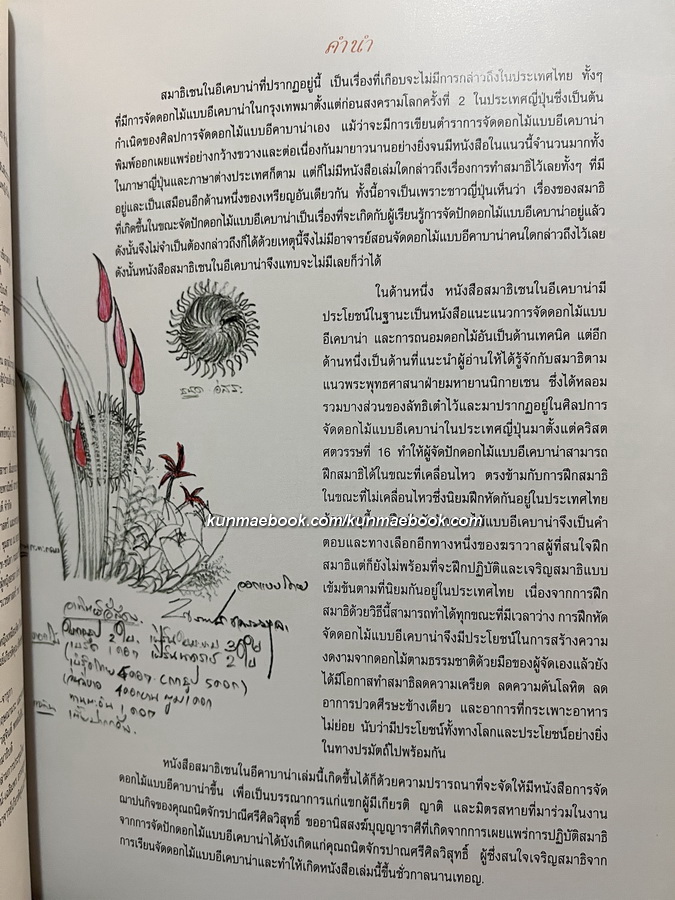 คำนำ
สมาธิเซนในอีเคบาน่าที่ปรากฏอยู่นี้ เป็นเรื่องที่เกือบจะไม่มีการกล่าวถึงในประเทศไทย ทั้งๆ
ที่มีการจัดดอกไม้แบบอีเคบาน่าในกรุงเทพมาตั้งแต่ก่อนสงครามโลกครั้งที่ 2 ในประเทศญี่ปุ่นซึ่งเป็นต้น
กำเนิดของศิลปการจัดดอกไม้แบบอีคาบาน่าเอง แม้ว่าจะมีการเขียนตำราการจัดดอกไม้แบบอีเคบาน่า
พิมพ์ออกเผยแพร่อย่างกว้างขวางและต่อเนื่องกันมายาวนานอย่างยิ่งจนมีหนังสือในแนวนี้จำนวนมากทั้ง
ในภาษาญี่ปุ่นและภาษาต่างประเทศก็ตาม แต่ก็ไม่มีหนังสือเล่มใดกล่าวถึงเรื่องการทำสมาธิไว้เลยทั้งๆ ที่มี
อยู่และเป็นเสมือนอีกด้านหนึ่งของเหรียญอันเดียวกัน ทั้งนี้อาจเป็นเพราะชาวญี่ปุ่นเห็นว่า เรื่องของสมาธิ
ที่เกิดขึ้นในขณะจัดปักดอกไม้แบบอีเคบาน่าเป็นเรื่องที่จะเกิดกับผู้เรียนรู้การจัดปักดอกไม้แบบอีเคบาน่าอยู่แล้ว
ดังนั้นจึงไม่จำเป็นต้องกล่าวถึงก็ได้ด้วยเหตุนี้จึงไม่มีอาจารย์สอนจัดดอกไม้แบบอีคาบาน่าคนใดกล่าวถึงไว้เลย
ดังนั้นหนังสือสมาธิเซนในอีเคบาน่าจึงแทบจะไม่มีเลยก็ว่าได้
ในด้านหนึ่ง หนังสือสมาธิเซนในอีเคบาน่ามี
ประโยชน์ในฐานะเป็นหนังสือแนะแนวการจัดดอกไม้แบบ
อีเคบาน่า และการถนอมดอกไม้อันเป็นด้านเทคนิค แต่อีก
ด้านหนึ่งเป็นด้านที่แนะนำผู้อ่านให้ได้รู้จักกับสมาธิตาม
แนวพระพุทธศาสนาฝ่ายมหายานนิกายเซน ซึ่งได้หลอม
รวมบางส่วนของลัทธิเต๋าไว้และมาปรากฏอยู่ในศิลปการ
จัดดอกไม้แบบอีเคบาน่าในประเทศญี่ปุ่นมาตั้งแต่คริสต
ศตวรรษที่ 16 ทำให้ผู้จัดปักดอกไม้แบบอีเคบาน่าสามารถ
ฝึกสมาธิได้ในขณะที่เคลื่อนไหว ตรงข้ามกับการฝึกสมาธิ
ในขณะที่ไม่เคลื่อนไหวซึ่งนิยมฝึกหัดกันอยู่ในประเทศไทย
kunmaebook.com/kunmaebook.com
ไม้แบบอีเคบาน่าจึงเป็นคำ
ตอบและทางเลือกอีกทางหนึ่งของฆราวาสผู้ที่สนใจฝึก
สมาธิแต่ก็ยังไม่พร้อมที่จะฝึกปฏิบัติและเจริญสมาธิแบบ
เข้มข้นตามที่นิยมกันอยู่ในประเทศไทย เนื่องจากการฝึก
สมาธิด้วยวิธีนี้สามารถทำได้ทุกขณะที่มีเวลาว่าง การฝึกหัด
จัดดอกไม้แบบอีเคบาน่าจึงมีประโยชน์ในการสร้างความ
งดงามจากดอกไม้ตามธรรมชาติด้วยมือของผู้จัดเองแล้วยัง
ได้มีโอกาสทำสมาธิลดความเครียด ลดความดันโลหิต ลด
อาการปวดศีรษะข้างเดียว และอาการที่กระเพาะอาหาร
ไม่ย่อย นับว่ามีประโยชน์ทั้งทางโลกและประโยชน์อย่างยิ่ง
ในทางปรมัตถ์ไปพร้อมกัน
หนังสือสมาธิเซนในอีคาบาน่าเล่มนี้เกิดขึ้นได้ก็ด้วยความปรารถนาที่จะจัดให้มีหนังสือการจัด
ดอกไม้แบบอีเคบาน่าขึ้น เพื่อเป็นบรรณาการแก่แขกผู้มีเกียรติ ญาติ และมิตรสหายที่มาร่วมในงาน
ฌาปนกิจของคุณถนิตจักรปาณีศรีศิลวิสุทธิ์ ขออานิสสงฆ์บุญญาราศีที่เกิดจากการเผยแพร่การปฏิบัติสมาธิ
จากการจัดปักดอกไม้แบบอีเคบาน่าได้บังเกิดแก่คุณถนิตจักรปาณศรีศิลวิสุทธิ์ ผู้ซึ่งสนใจเจริญสมาธิจาก
การเรียนจัดดอกไม้แบบอีเคบาน่าและทำให้เกิดหนังสือเล่มนี้ขึ้นชั่วกาลนานเทอญ.